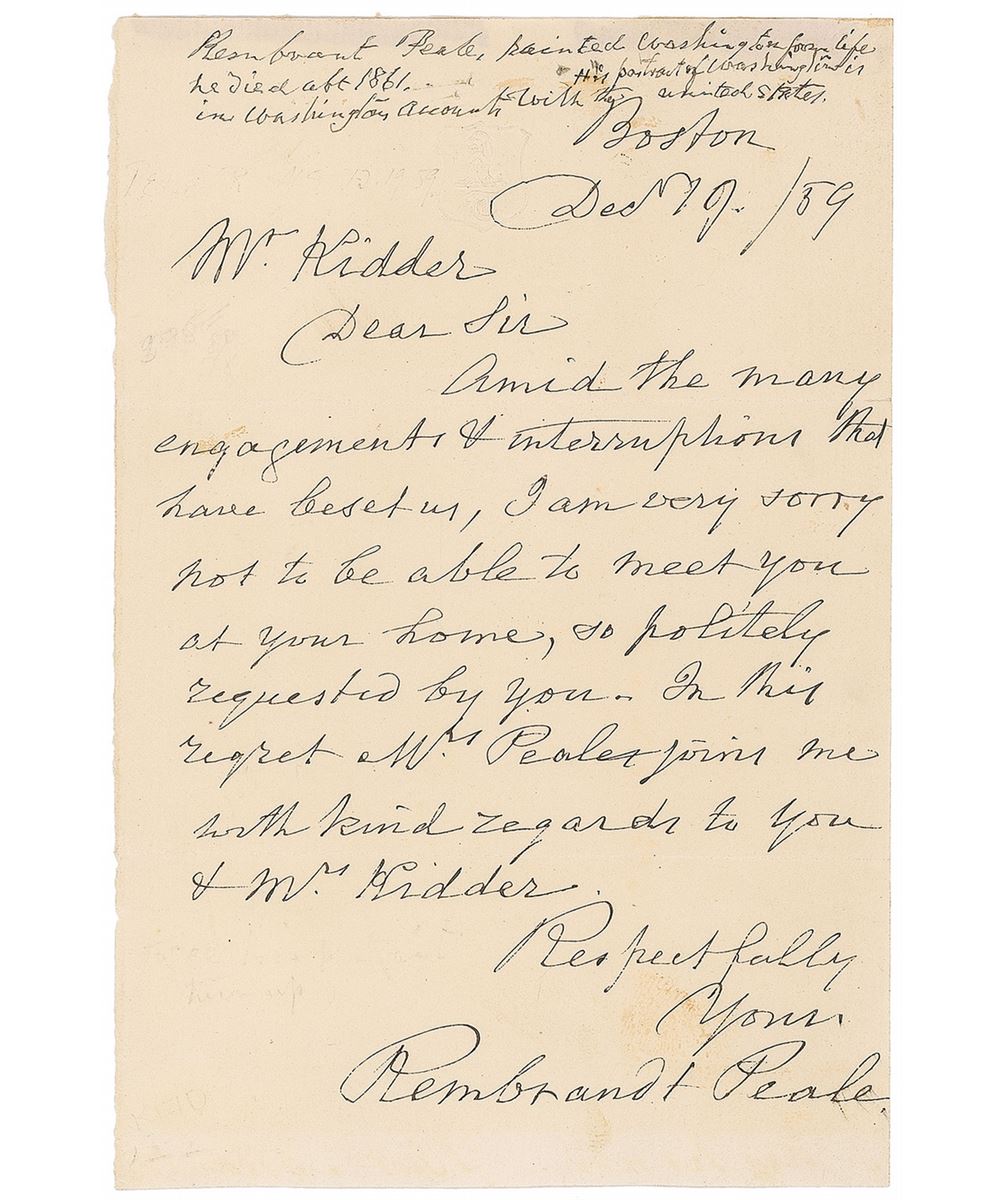 Rembrant Peale, painted Washington from life
he died abt 1861. His portrait of Washington is
in Washington account with the united states.
Boston
Decr 19. /59
Mr. Kidder
Dear Sir
Amid the many
engagements & interruptions that
have beset us, I am very sorry
not to be able to meet you
at your home, so politely
requested by you. In this
regret Mrs Peale joins me
with kind regards to you
& Mrs Kidder.
Respectfully
Yours.
Rembrandt Peale.